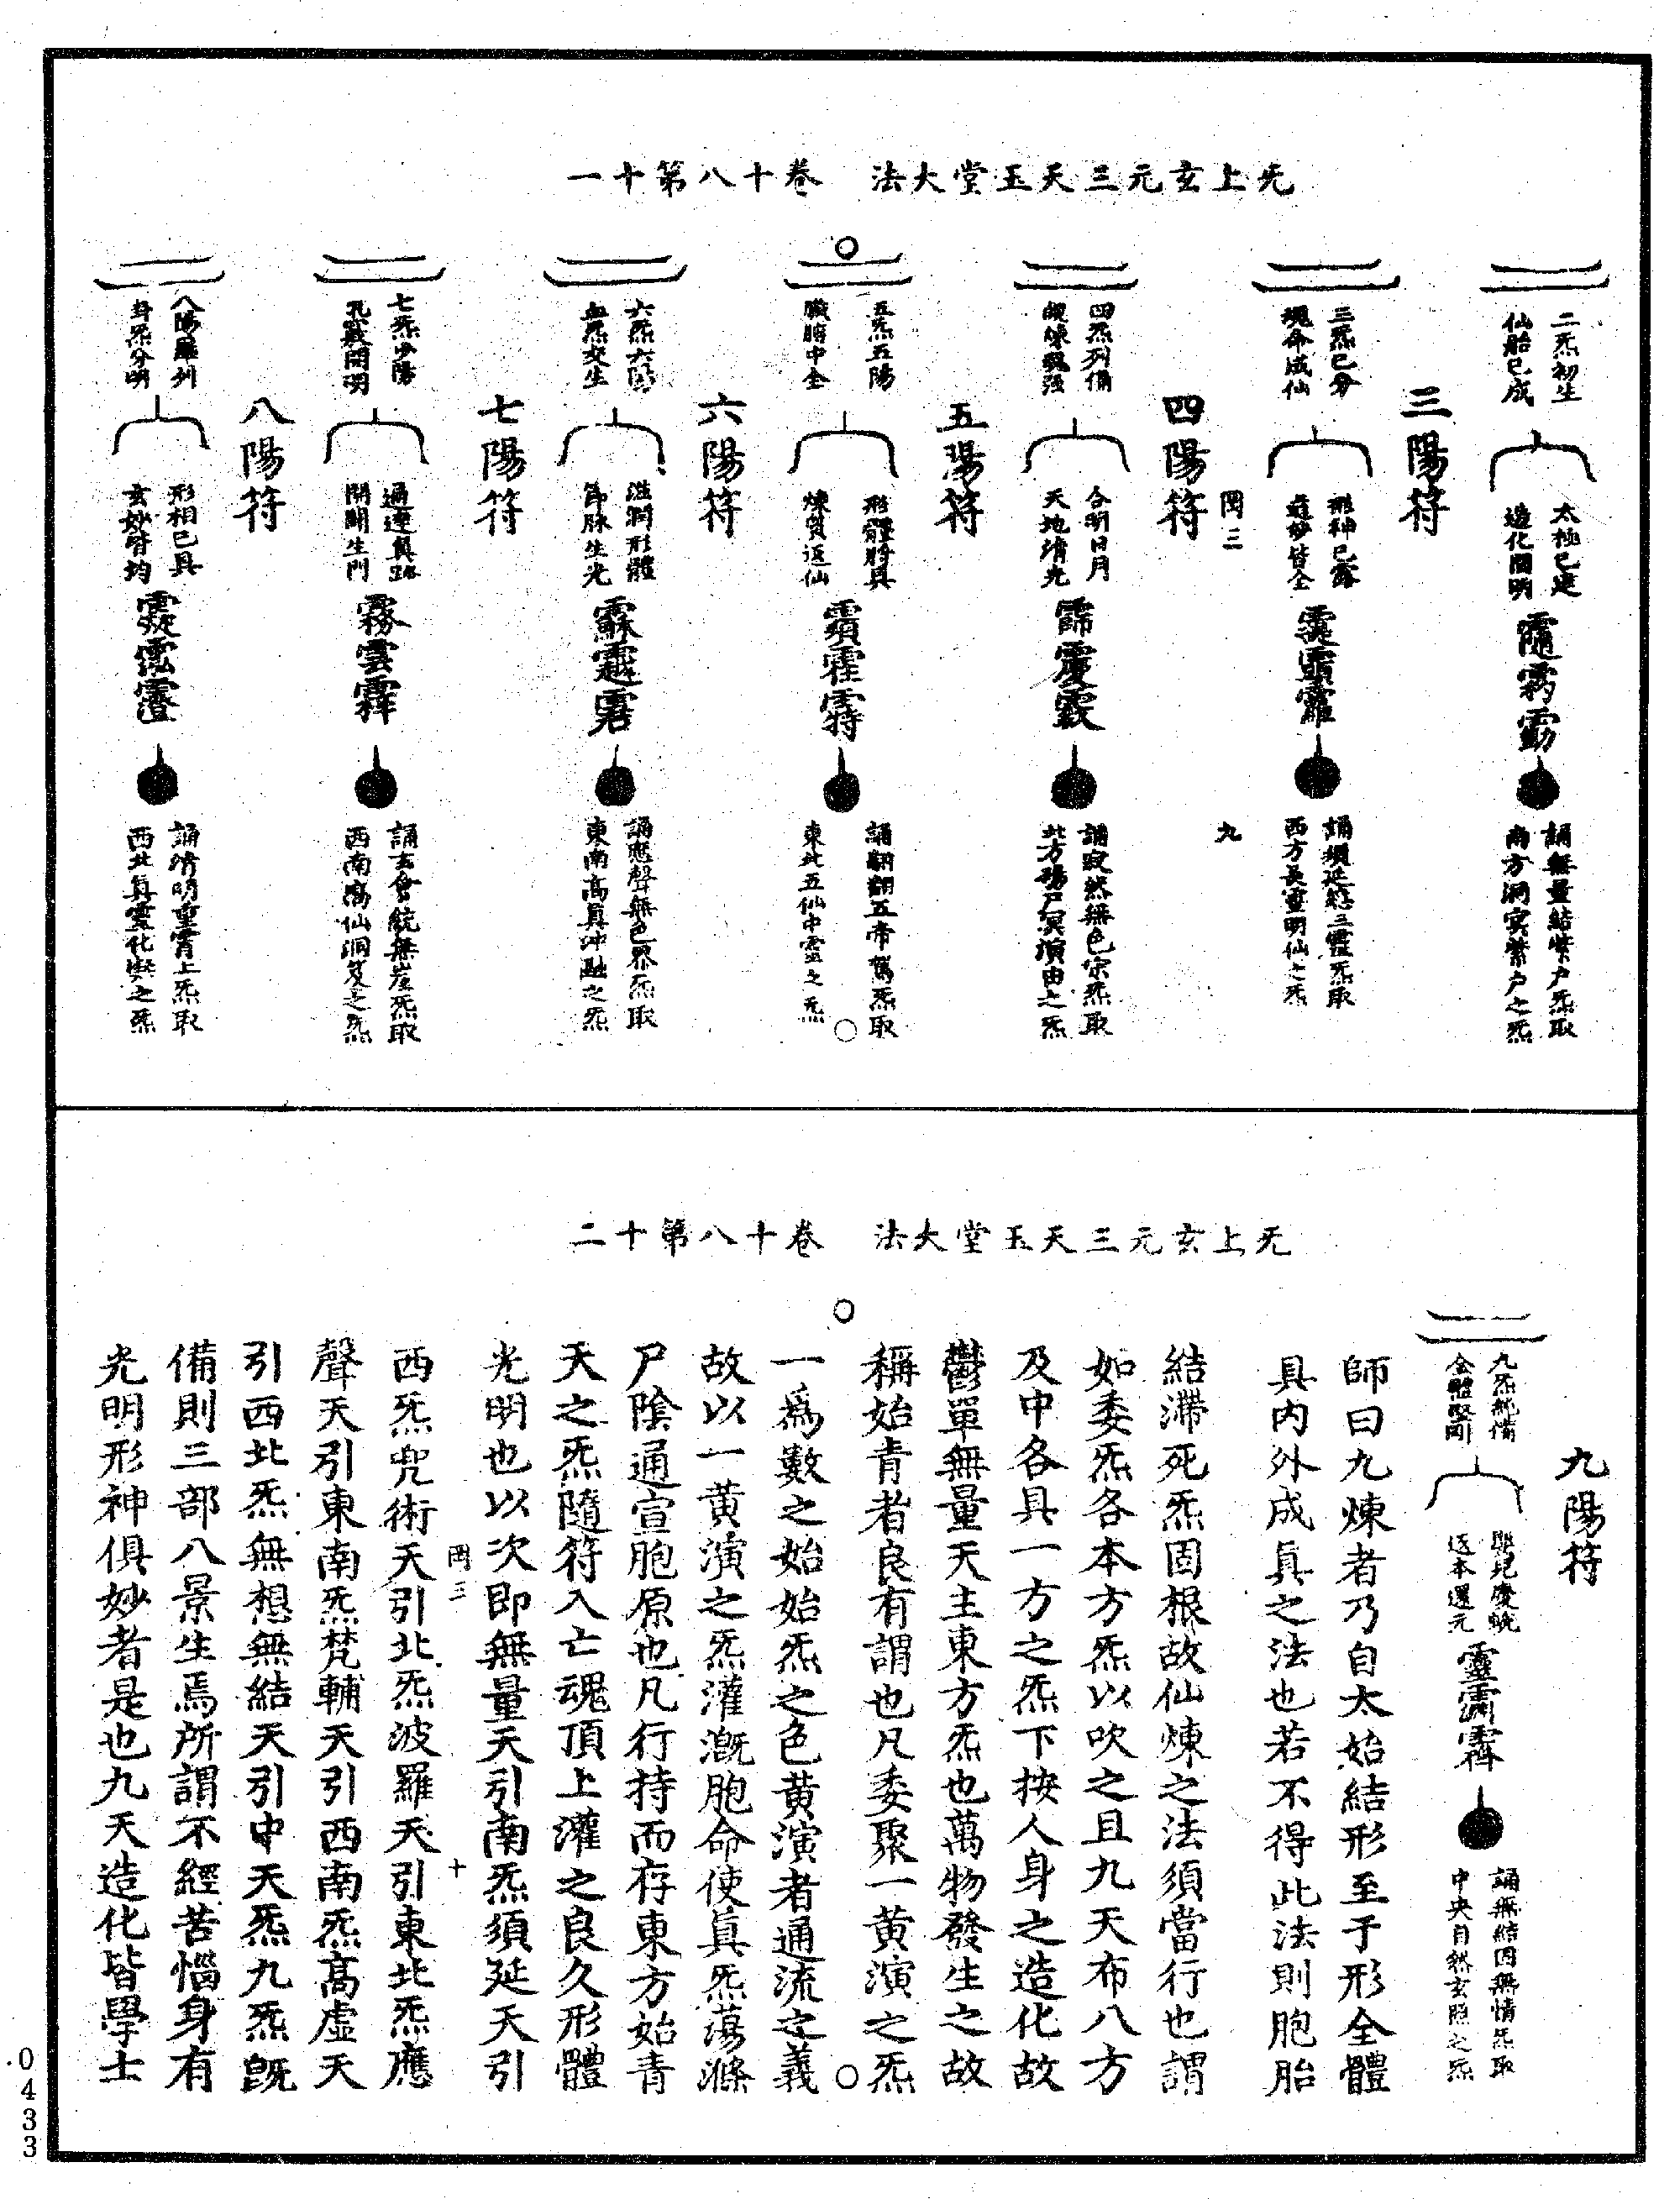 无上玄元三天玉堂大法　卷十八第十一
二炁初生
仙胎已成
太極已建
造化開明
誦無量結紫戶炁取
南方洞寞紫戶之炁
三陽符
三炁已分
魂命成仙
形神已露
道妙皆全
誦須延 三靈炁取
西方長靈明仙之炁
岡三
九
四陽符
四炁列備
合明日月
天地清光
誦寂然無色宗炁取
北方 尸冥演由之炁
五陽符
五炁五陽
臟腑中全
形體將具
煉質返仙
誦翻翻五帝駕炁取
東北五仙中靈之炁
六陽符
六炁六陽
血炁交生
滋潤形體
節脉生光
誦應聲無色界炁取
東南高真沖融之炁
七陽符
七炁少陽
孔竅開明
通達真路
開闢生門
誦玄會統無崖炁取
西南高仙洞笈之炁
八陽符
八陽羅列
身炁分明
形相已具
玄妙皆均
誦清明重霄上炁取
西北真靈化 之炁
无上玄元三天玉堂大法　卷十八第十二
九陽符
九炁純備
金體堅剛
返本還元
誦無結固無情炁取
中央自然玄照之炁
師曰九煉者乃自太始結形至于形全體
具內外成真之法也若不得此法則胞胎
結滯死炁固根故仙煉之法須當行也謂
如委炁各本方炁以吹之且九天布八方
及中各具一方之炁下按人身之造化故
鬱單無量天主東方炁也萬物發生之故
稱始青者良有謂也凡委聚一黃演之炁
一為數之始始炁之色黃演者通流之義
故以一黃演之炁灌溉胞命使真炁蕩滌
尸陰通宣胞原也凡行持而存東方始青
天之炁隨符入亡魂頂上灌之良久形體
光明也以次即無量天引南炁須延天引
岡三
十
西炁兜術天引北炁波羅天引東北炁應
聲天引東南炁梵輔天引西南炁高虛天
引西北炁無想無結天引中天炁九炁既
備則三部八景生焉所謂不經苦惱身有
光明形神俱妙者是也九天造化皆學士
0433